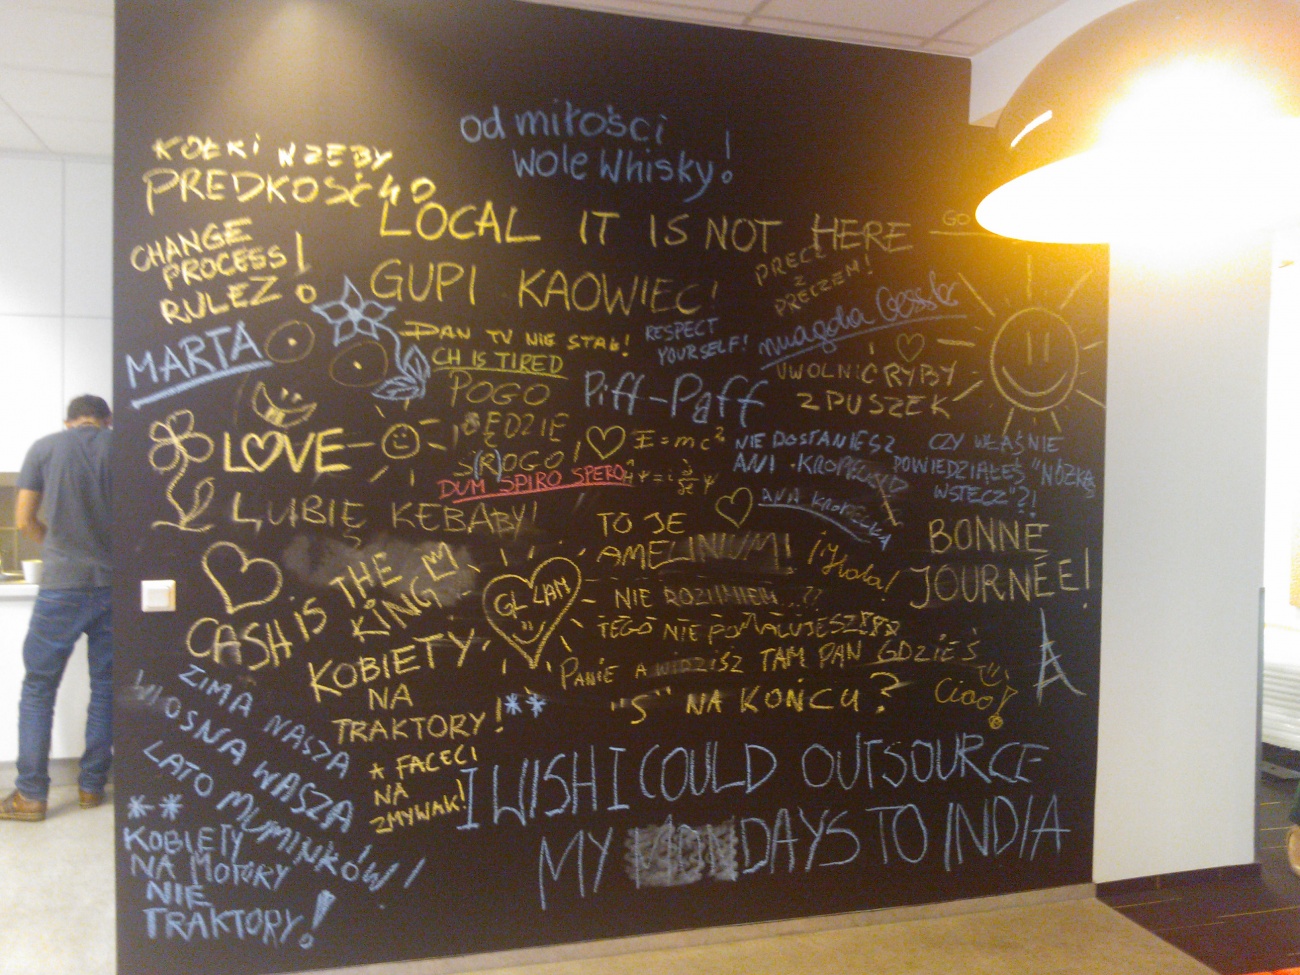 od miłości
wole Whisky!
KOŁKI W ZĘBY
PREDKOSĆ 40
LOCAL IT IS NOT HERE
GO
CHANGE
PROCESS!
RULEZ!
GUPI KAOWIEC!
PRECZ
Z
PRECZEM!
MARTA
DAN TV NIE STAŁ!
CH IS TIRED
RESPECT
YOURSELF!
magda Gessler
POGO
BĘDZIE
S(R)OGO!
Piff-Paff
UWOLNIĆ RYBY
Z PUSZEK
LOVE
E=mc²
DUM SPIRO SPERO
NIE DOSTANIESZ
ANI
ANA KROPELKA
CZY WŁAŚNIE
POWIEDZIAŁEŚ "NÓŻKĄ
WSTECZ"?!
LUBIĘ KEBABY!
TO JE
AMELINIUM!
¡¡Hola!
BONNE
JOURNÉE!
CASH IS THE
KING
GLLAM
NIE ROZUMIEM...??
TEGO NIE POMALUJESZ
PANIE A WIDZISZ TAM PAN GDZIEŚ
"S" NA KOŃCU?
Ciao!
A
KOBIETY
NA
TRAKTORY!**
* FACECI
NA
ZMYWAK!
ZIMA NASZA
WIOSNA WASZA
LATO MUMINKÓW!
**
KOBIETY
NA MOTORY
NIE
TRAKTORY!
I WISH I COULD OUTSOURCE
MY MONDAYS TO INDIA